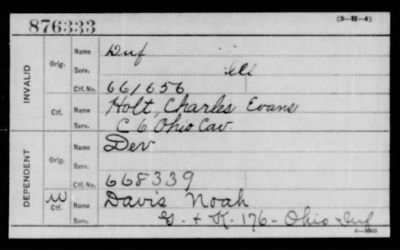 876333
(3-H-4)
INVALID
Orig.
Name
Inf
Serv.
Ctf. No.
661656
Ctf.
Name
Holt, Charles Evans
Serv.
C 6 Ohio Cav.
DEPENDENT
Orig.
Name
Dev
Serv.
Ctf. No.
668339
W
Ctf.
Name
Davis Noah
Serv.
G. + K- 176- Ohio Inf